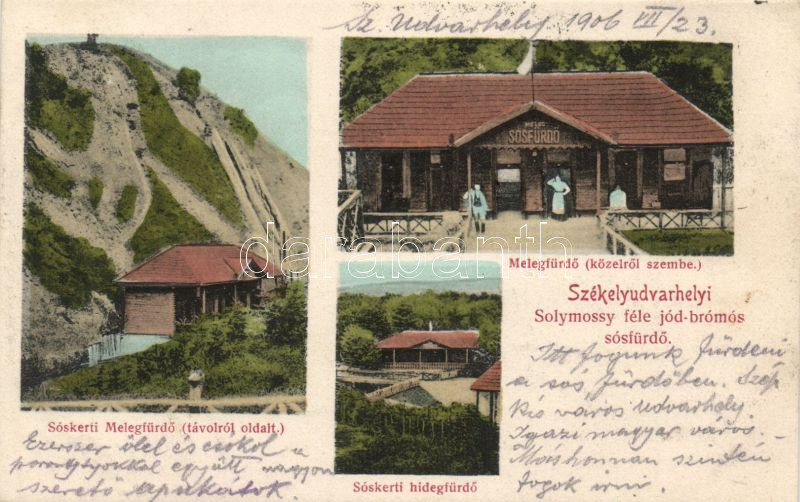 Sz. Udvarhely 1906 VII/23.
MELEG
SÓSFÜRDŐ
Melegfürdő (közelről szembe.)
Székelyudvarhelyi
Solymossy féle jód-brómós
sósfürdő.
Itt fogunk fürdeni
a sós fürdőben. Szép
kis város Udvarhely.
Igazi magyar város.
Máshonnan szintén
fogok irni.
Sóskerti Melegfürdő (távolról oldalt.)
Ezerszer ölel és csókol a
együtt nagyon
szerető apukátok.
Sóskerti hidegfürdő
darabanth.com